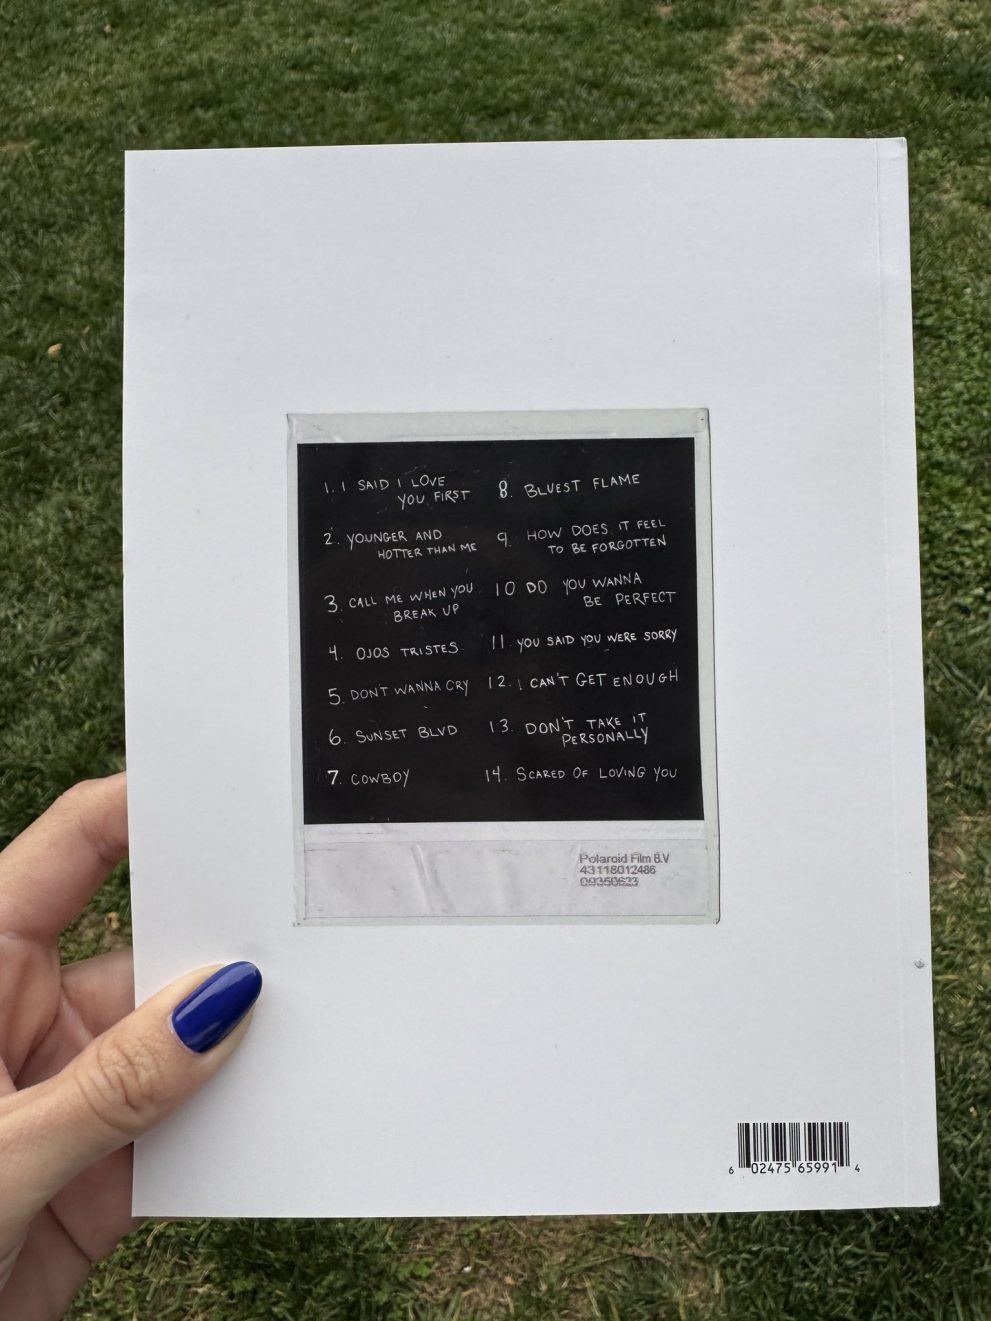 1. I SAID I LOVE
YOU FIRST
2. YOUNGER AND
HOTTER THAN ME
3. CALL ME WHEN YOU
BREAK UP
4. OJOS TRISTES
5. DON'T WANNA CRY
6. SUNSET BLVD
7. COWBOY
8. BLUEST FLAME
9. HOW DOES IT FEEL
TO BE FORGOTTEN
10 DO YOU WANNA
BE PERFECT
11. YOU SAID YOU WERE SORRY
12. I CAN'T GET ENOUGH
13. DON'T TAKE IT
PERSONALLY
14. SCARED OF LOVING YOU
Polaroid Film B.V
43118012486
6 02475 65991 4